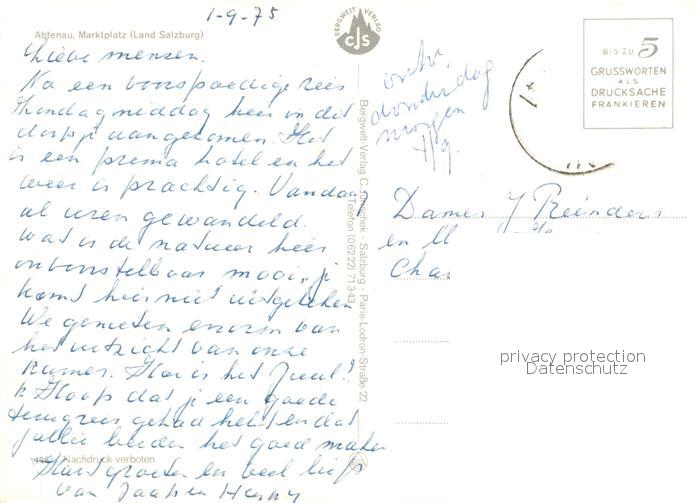 1-9-75
Abtenau, Marktplatz (Land Salzburg)
Lieve mensen.
Na een voorspoedige reis
Zondagmiddag hier in dit
dorpje aangekomen. Het
is een prima hotel en het
weer is prachtig. Vandaag
al uren gewandeld.
Wat is de natuur hier
onvoorstelbaar mooi, je
komt hier niet uitgekeken
We genieten enorm van
het uitzicht van onze
kamer. Hoe is het Juul?
Ik Hoop dat je een goede
terugreis gehad hebt en dat
jullie beiden het goed maken
Hart groeten en veel liefs
van Jaap en Henny
498 Nachdruck verboten
BERGWELT VERLAG
CJS
Bergwelt-Verlag C. - Salzburg - Paris-Lodron-Straße 22
Telefon (06222) 71343
ontv.
donderdag
morgen
4/9.
BIS ZU 5
GRUSSWORTEN
ALS
DRUCKSACHE
FRANKIEREN
Dames J Reinders
en
Cha
privacy protection
Datenschutz